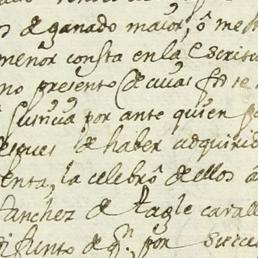 s de ganado maior, ô me
menor consta en la Escritu
no presento de cuias
por ante quien p
despues de haber adquirid
enta, la celebrô de ellos a
Sanchez de Tagle cavall
difunto de qn. por